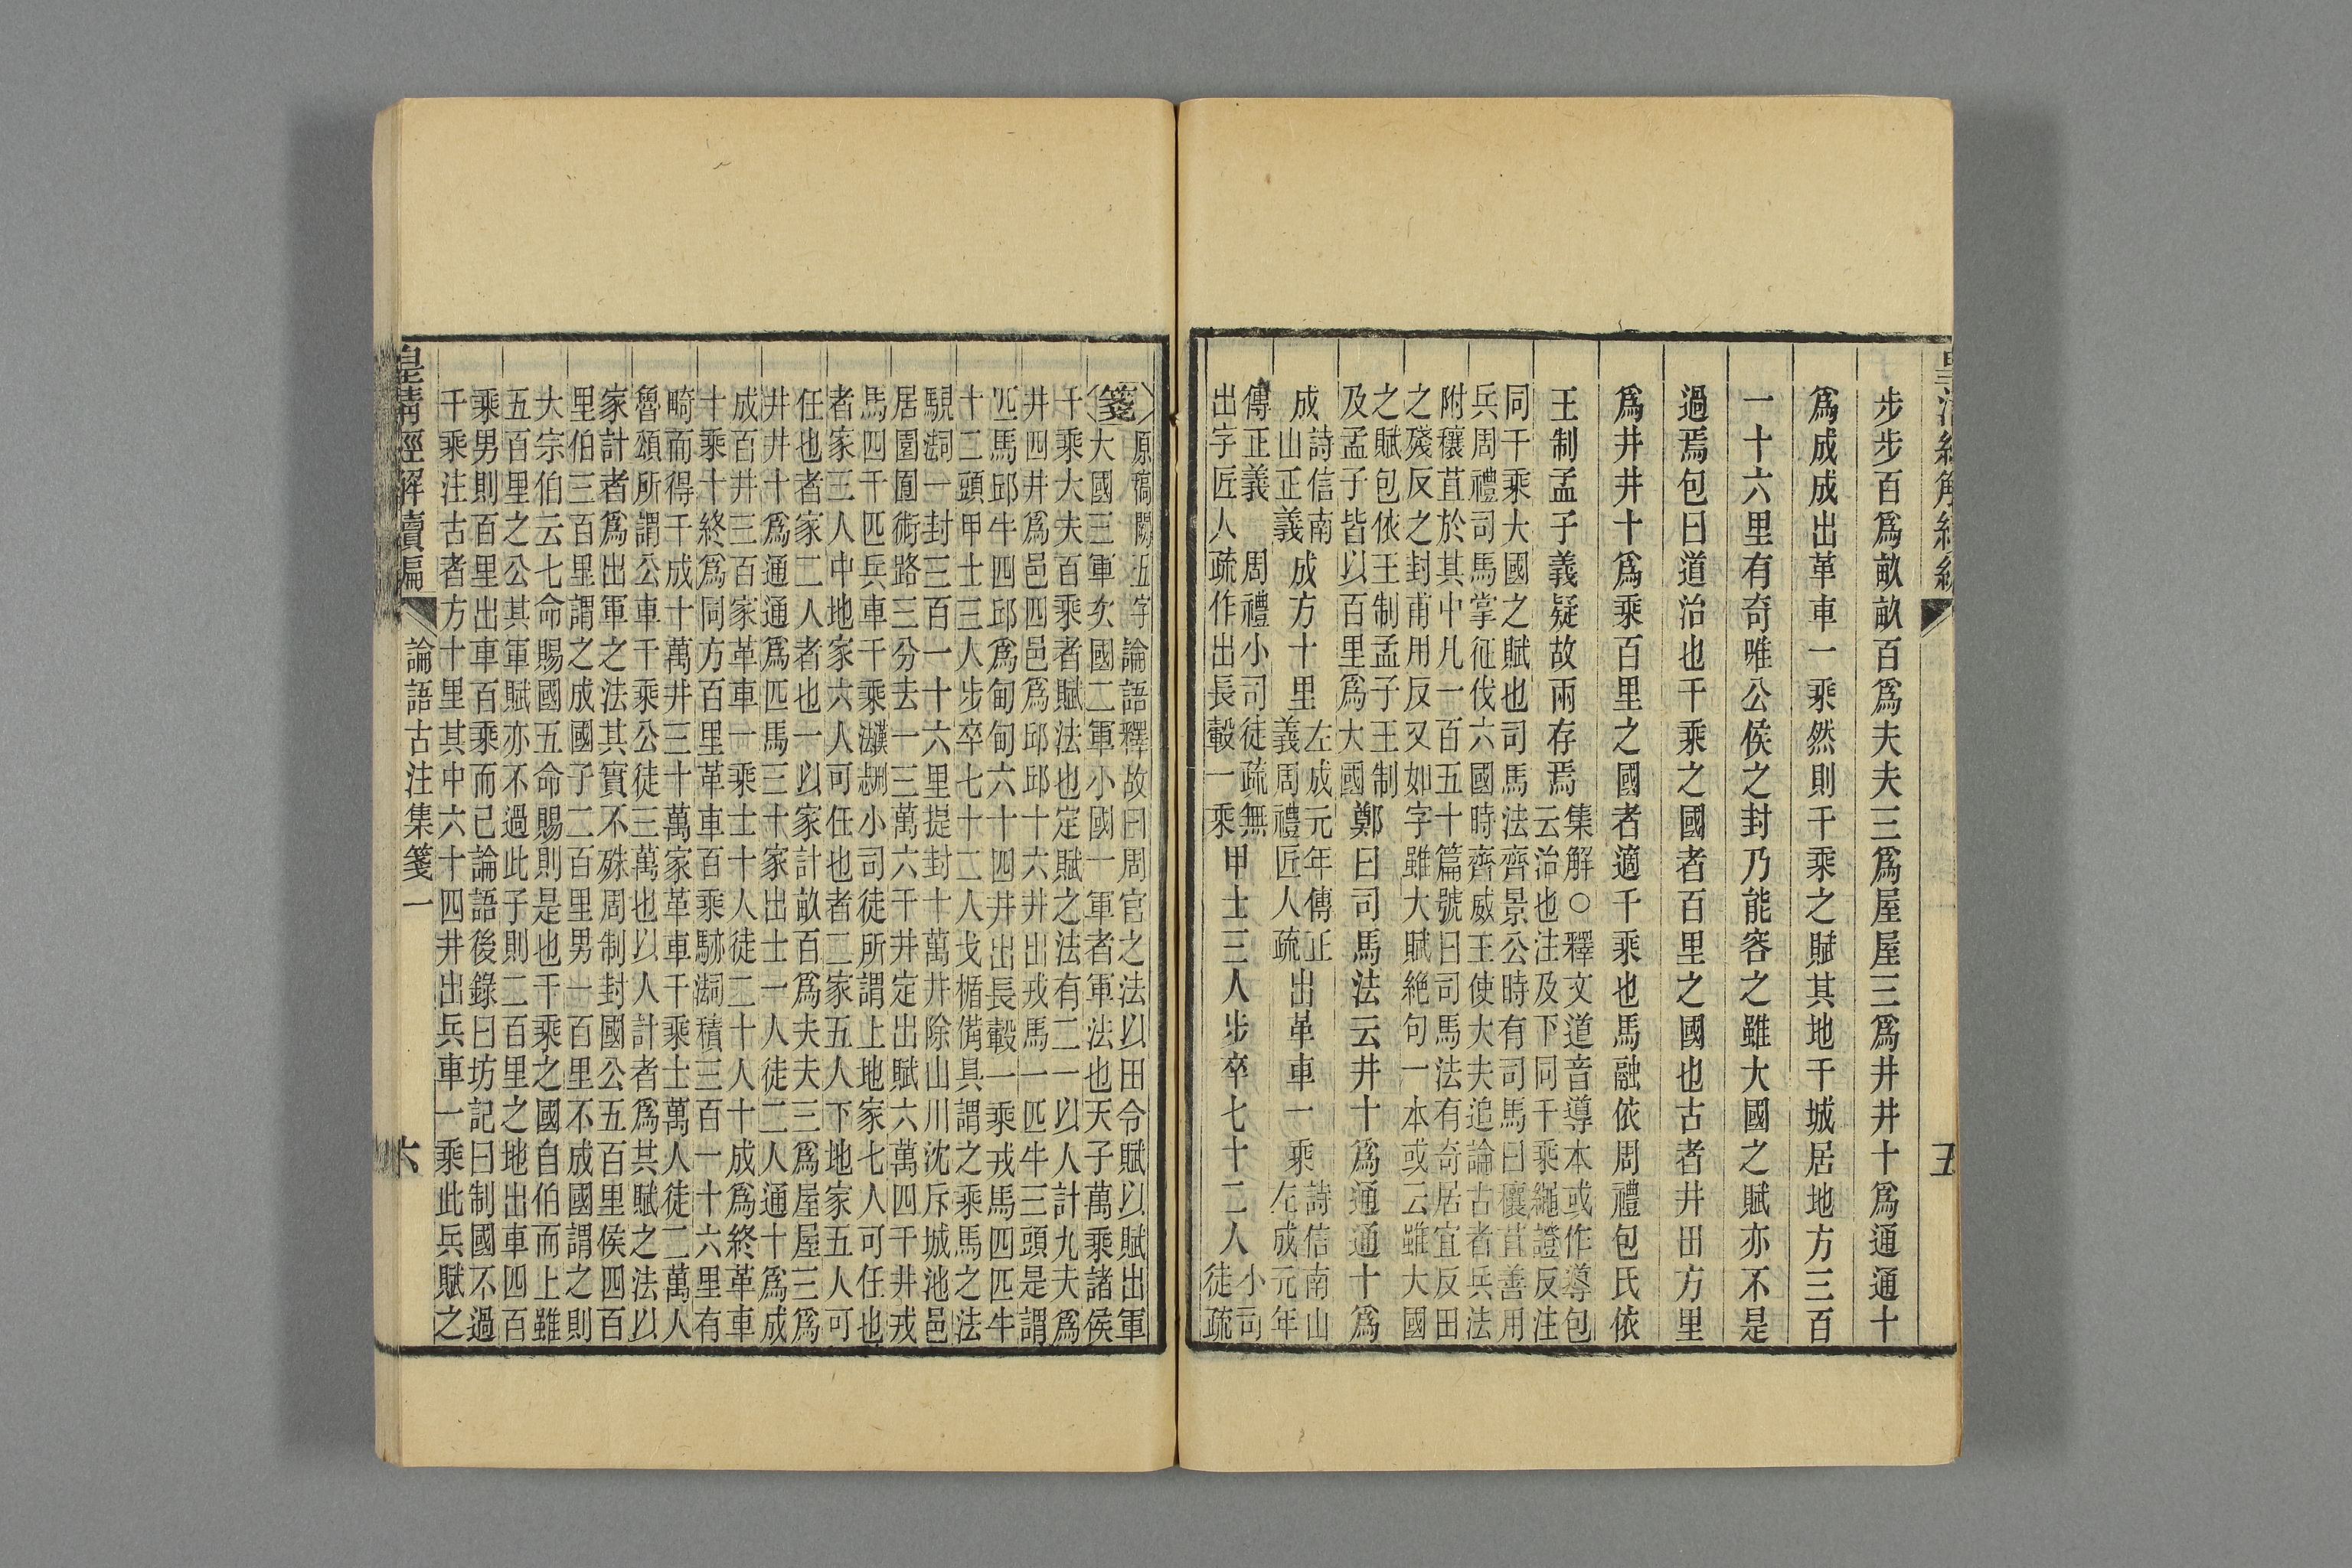 步步百爲畝畝百爲夫夫三爲屋屋三爲井井十爲通通十
爲成成出革車一乘然則千乘之賦其地千城居地方三百
一十六里有奇唯公侯之封乃能容之雖大國之賦亦不是
過焉包曰道治也千乘之國者百里之國也古者井田方里
爲井井十爲乘百里之國者適千乘也馬融依周禮包氏依
王制孟子義疑故兩存焉
集解○釋文道音導本或作導包
云治也注及下同千乘繩證反注
同千乘大國之賦也司馬法齊景公時有司馬曰穰苴善用
兵周禮司馬掌征伐六國時齊威王使大夫追論古者兵法
附穰苴於其中凡一百五十篇號曰司馬法有奇居宜反田
之殘反之封甫用反又如字雖大賦絶句一本或云雖大國
之賦包依王制孟子王制
及孟子皆以百里爲大國
鄭曰司馬法云井十爲通通十爲
成
詩信南
山正義
成方十里
左成元年傳正
義周禮匠人疏
出革車一乘
詩信南山
左成元年
傳正義
出字匠人
周禮小司徒疏無
疏作出長轂一乘
甲士三人步卒七十二人
小司
徒疏
箋
原稿闕五字
論語釋故曰周官之法以田令賦以賦出軍
大國三軍次國二軍小國一軍者軍法也天子萬乘諸侯
千乘大夫百乘者賦法也定賦之法有二一以人計九夫爲
井四井爲邑四邑爲邱邱十六井出戎馬一匹牛三頭是謂
匹馬邱牛四邱爲甸甸六十四井出長轂一乘戎馬四匹牛
十二頭甲士三人步卒七十二人戈楯備具謂之乘馬之法
一封三百一十六里提封十萬井除山川沈斥城池邑
居園囿術路三分去一三萬六千井定出賦六萬四千井戎
馬四千匹兵車千乘小司徒所謂上地家七人可任也
者家三人中地家六人可任也者二家五人下地家五人可
任也者家二人者也一以家計畝百爲夫夫三爲屋屋三爲
井井十爲通通爲匹馬三十家出士一人徒二人通十爲成
成百井三百家革車一乘士十人徒二十人十成爲終革車
十乘十終爲同方百里革車百乘積三百一十六里有
畸而得千成十萬井三十萬家革車千乘士萬人徒二萬人
魯頌所謂公車千乘公徒三萬也以人計者爲其賦之法以
家計者爲出軍之法其實不殊周制封國公五百里侯四百
里伯三百里謂之成國子二百里男一百里不成國謂之則
大宗伯云七命賜國五命賜則是也千乘之國自伯而上雖
五百里之公其軍賦亦不過此子則二百里之地出車四百
乘男則百里出車百乘而已論語後錄曰坊記曰制國不過
千乘注古者方十里其中六十四井出兵車一乘此兵賦之
皇清經解續編
論語古注集箋一
六